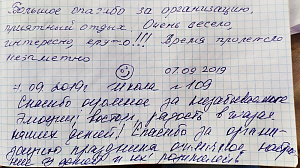 Большое спасибо за организацию,
приятный отдых. Очень весело,
интересно, круто!!! Время пролетело
незаметно
07.09.2019
.09.2019г. Школа №109
Спасибо огромное за незабываемые
эмоции, восторг, радость в глазах
наших детей! Спасибо за органи-
зацию праздника